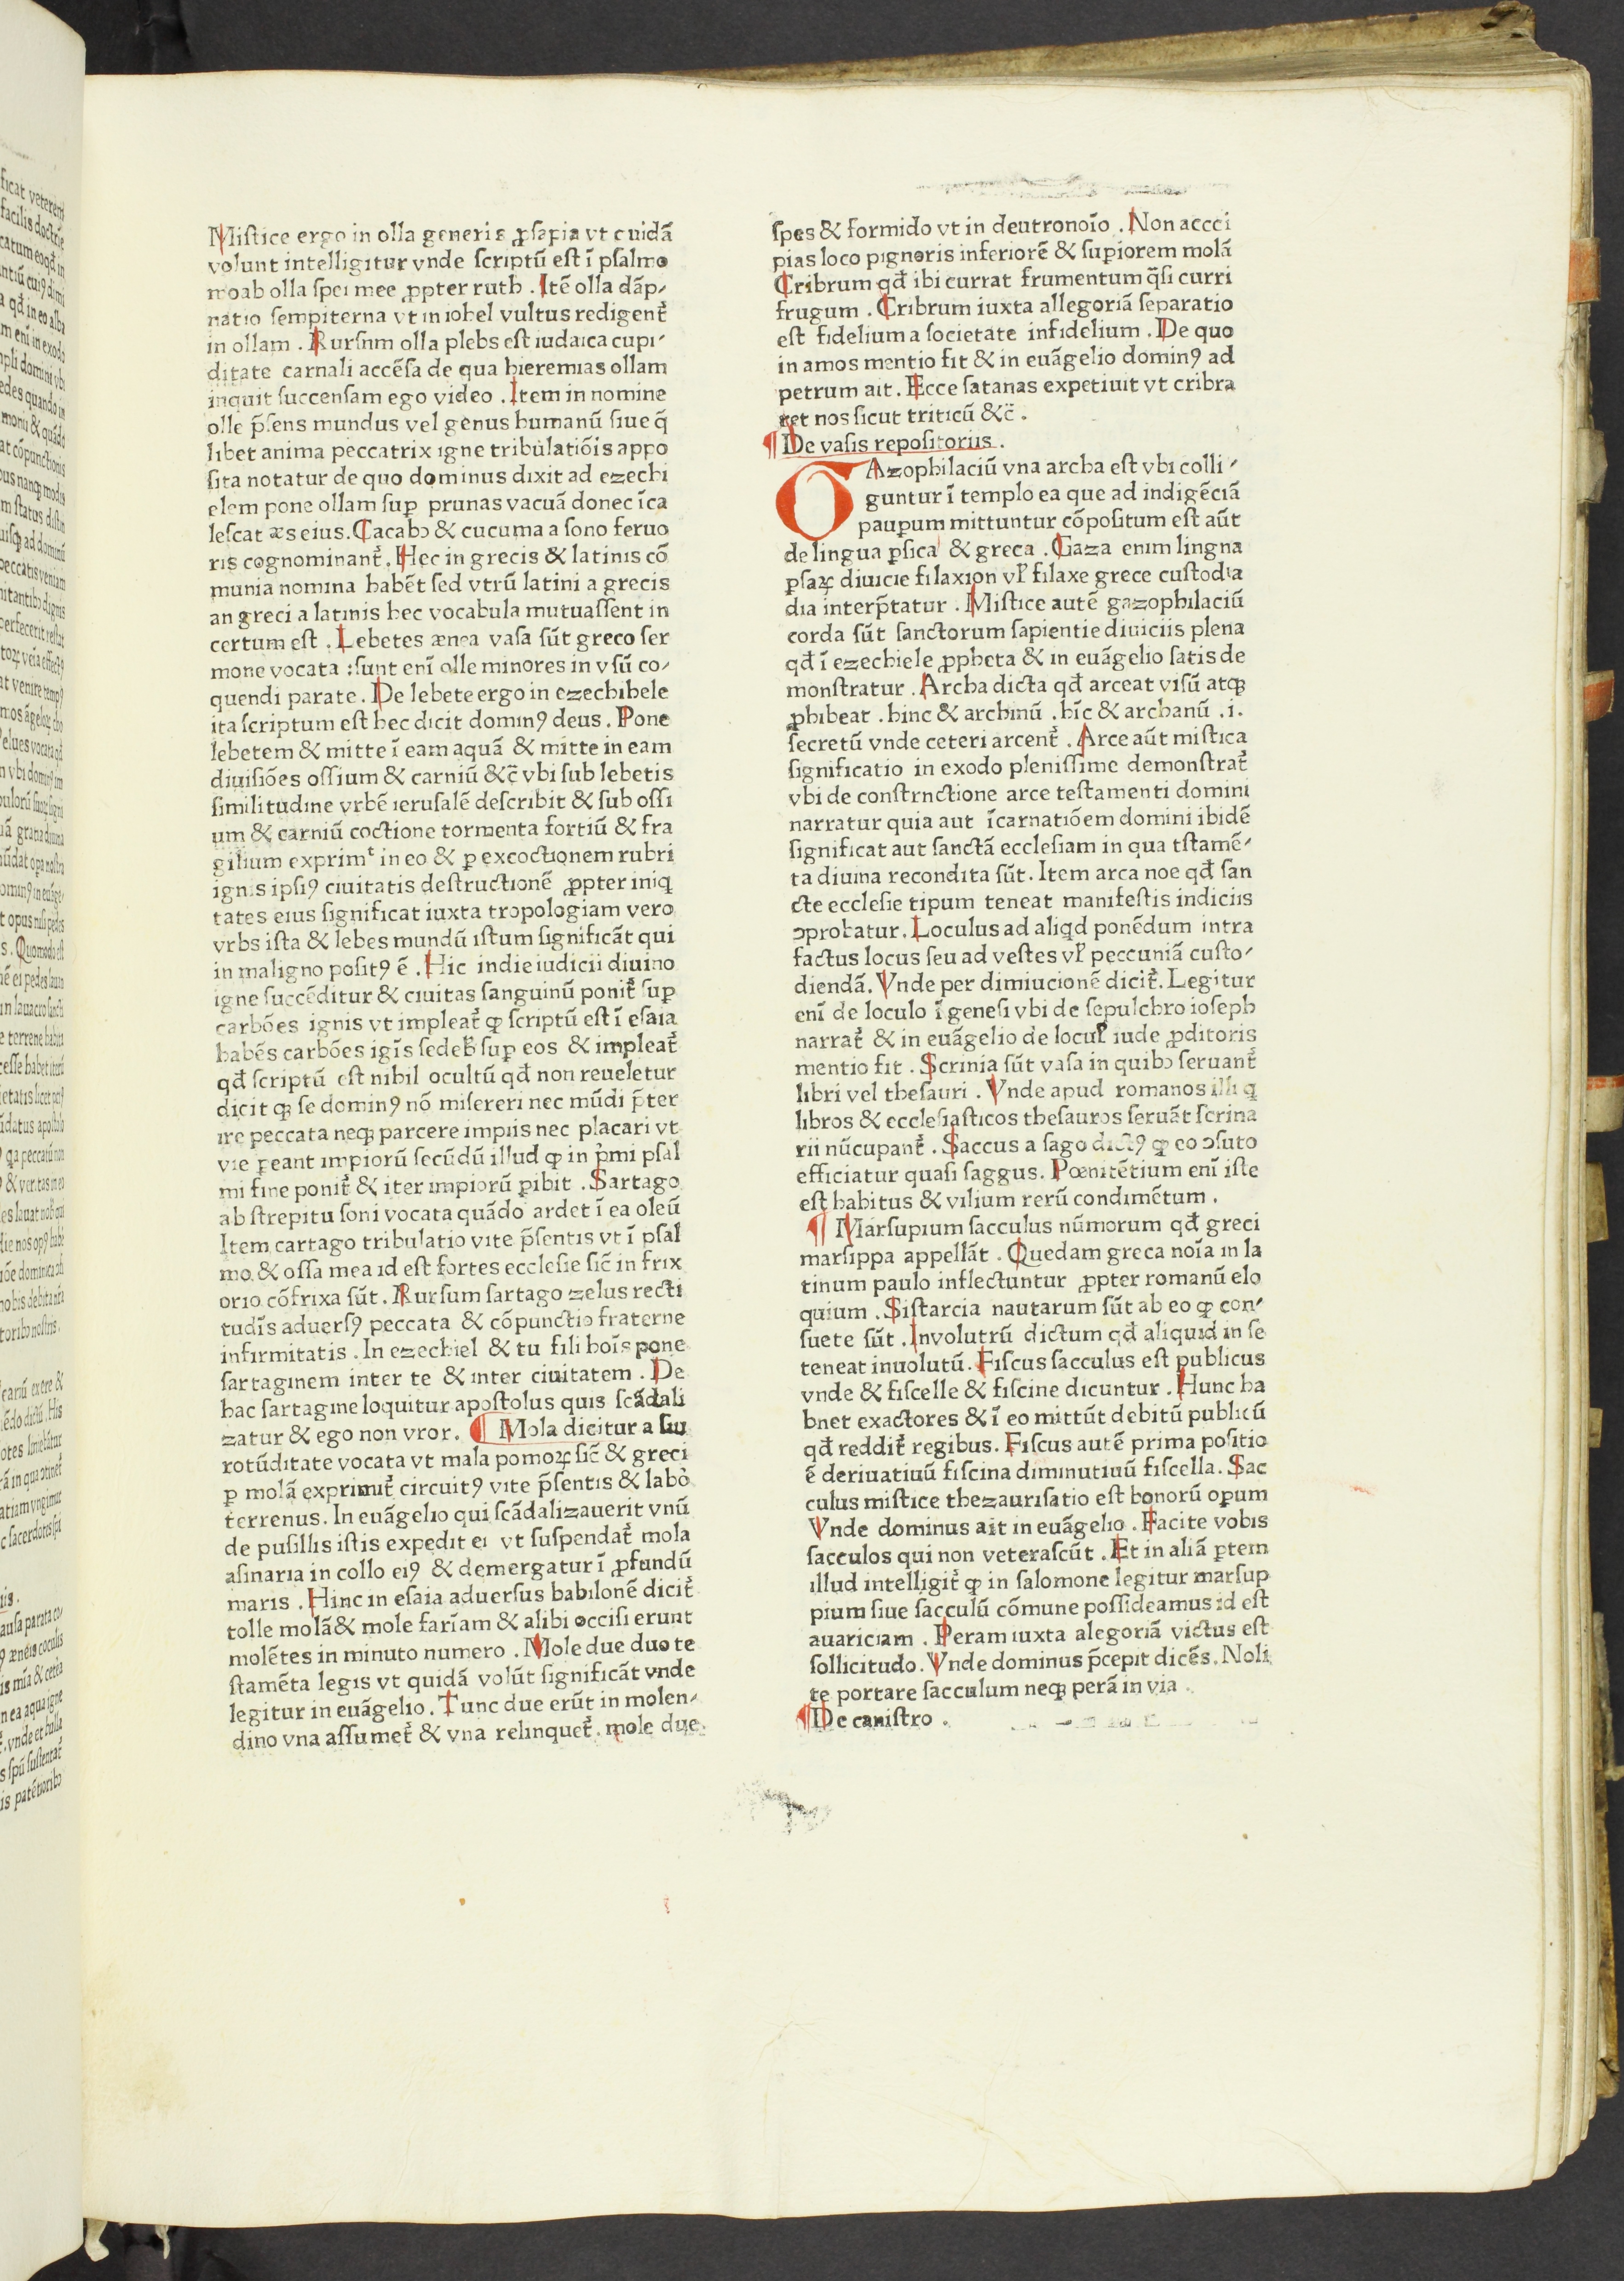 Miſtice ergo in olla generis ꝓſapia vt cuidã
volunt intelligitur vnde ſcriptũ eſt ĩ pſalmo
moab olla ſpei mee ꝓpter ruth . Itẽ olla dãp⸗
natio ſempiterna vt in iohel vultus redigent᷑
in ollam . Rurſnm olla plebs eſt iudaica cupi⸗
ditate carnali accẽſa de qua hieremias ollam
inquit ſuccenſam ego video . Item in nomine
olle p̃ſens mundus vel genus humanũ ſiue q̃
libet anima peccatrix igne tribulatiõis appo
ſita notatur de quo dominus dixit ad ezechi
elem pone ollam ſuꝑ prunas vacuã donec ĩca
leſcat æs eius. Cacabꝰ & cucuma a ſono feruo
ris cognominant᷑. Hec in grecis & latinis cõ
munia nomina habẽt ſed vtrũ latini a grecis
an greci a latinis hec vocabula mutuaſſent in
certum eſt . Lebetes ænea vaſa ſũt greco ſer
mone vocata :ſunt enĩ olle minores in vſũ co⸗
quendi parate. De lebete ergo in ezechihele
ita ſcriptum eſt hec dicit dominꝰ deus. Pone
lebetem & mitte ĩ eam aquã & mitte in eam
diuiſiões oſſium & carniũ &c̃ vbi ſub lebetis
ſimilitudine vrbẽ ieruſalẽ deſcribit & ſub oſſi
um & carniũ coctione tormenta fortiũ & fra
gilium exprimͭ in eo & ꝑ excoctionem rubri
ignis ipſiꝰ ciuitatis deſtructionẽ ꝓpter iniq̃
tates eius ſignificat iuxta tropologiam vero
vrbs iſta & lebes mundũ iſtum ſignificãt qui
in maligno poſitꝰ ẽ . Hic indie iudicii diuino
igne ſuccẽditur & ciuitas ſanguinũ ponit᷑ ſuꝑ
carbões ignis vt impleat᷑ ꝙ ſcriptũ eſt ĩ eſaia
habẽs carbões igĩs ſedeb̃ ſuꝑ eos & impleat᷑
qđ ſcriptũ eſt nihil ocultũ qđ non reueletur
dicit ꝙ ſe dominꝰ nõ miſereri nec mũdi p̃ter
ire peccata neqꝫ parcere impiis nec placari vt
vie ꝑeant impiorũ ſecũdũ illud ꝙ in p̃mi pſal
mi fine ponit᷑ & iter impiorũ ꝑibit . Sartago
ab ſtrepitu ſoni vocata quãdo ardet ĩ ea oleũ
Item cartago tribulatio vite p̃ſentis vt ĩ pſal
mo & oſſa mea id eſt fortes eccleſie ſic̃ in frix
orio cõfrixa ſũt. Rurſum ſartago zelus recti
tudĩs aduerſꝰ peccata & cõpunctio fraterne
infirmitatis . In ezechiel & tu fili hoĩs pone
ſartaginem inter te & inter ciuitatem . De
hac ſartagine loquitur apoſtolus quis ſcãdali
zatur & ego non vror. ¶ Mola dicitur a ſui
rotũditate vocata vt mala pomoꝝ ſic̃ & greci
ꝑ molã exprimit᷑ circuitꝰ vite p̃ſentis & labo᷑
terrenus. In euãgelio qui ſcãdalizauerit vnũ
de puſillis iſtis expedit ei vt ſuſpendat᷑ mola
aſinaria in collo eiꝰ & demergatur ĩ ꝓfundũ
maris . Hinc in eſaia aduerſus babilonẽ dicit᷑
tolle molã & mole farĩam & alibi occiſi erunt
molẽtes in minuto numero . Mole due duo te
ſtamẽta legis vt quidã volũt ſignificãt vnde
legitur in euãgelio. Tunc due erũt in molen⸗
dino vna aſſumet᷑ & vna relinquet᷑. mole due
ſpes & formido vt in deutronoĩo . Non accci
pias loco pignoris inferiorẽ & ſuꝑiorem molã
Cribrum qđ ibi currat frumentum q̃ſi curri
frugum . Cribrum iuxta allegoriã ſeparatio
eſt fidelium a ſocietate infidelium . De quo
in amos mentio fit & in euãgelio dominꝰ ad
petrum ait . Ecce ſatanas expetiuit vt cribra
ret nos ſicut triticũ &c̃ .
¶De vaſis repoſitoriis .
GAzophilaciũ vna archa eſt vbi colli⸗
guntur ĩ templo ea que ad indigẽciã
pauꝑum mittuntur cõpoſitum eſt aũt
de lingua ꝑſica & greca . Gaza enim lingna
ꝑſaꝝ diuicie filaxion vl̃ filaxe grece cuſtodia
dia interp̃tatur . Miſtice autẽ gazophilaciũ
corda ſũt ſanctorum ſapientie diuiciis plena
qđ ĩ ezechiele ꝓpheta & in euãgelio ſatis de
monſtratur . Archa dicta qđ arceat viſũ atqꝫ
ꝓhibeat . hinc & archinũ . hĩc & archanũ .i.
ſecretũ vnde ceteri arcent᷑ . Arce aũt miſtica
ſignificatio in exodo pleniſſime demonſtrat᷑
vbi de conſtrnctione arce teſtamenti domini
narratur quia aut ĩcarnatiõem domini ibidẽ
ſignificat aut ſanctã eccleſiam in qua tſtamẽ⸗
ta diuina recondita ſũt. Item arca noe qđ ſan
cte eccleſie tipum teneat manifeſtis indiciis
ꝯprobatur. Loculus ad aliqđ ponẽdum intra
factus locus ſeu ad veſtes vl̃ peccuniã cuſto⸗
diendã. Vnde per dimiucionẽ dicit᷑. Legitur
enĩ de loculo ĩ geneſi vbi de ſepulchro ioſeph
narrat᷑ & in euãgelio de locul̃ iude ꝓditoris
mentio fit . Scrinia ſũt vaſa in quibꝰ ſeruant᷑
libri vel theſauri . Vnde apud romanos illi q̃
libros & eccleſiaſticos theſauros ſeruãt ſcrina
rii nũcupant᷑ . Saccus a ſago dictꝰ ꝙ eo ꝯſuto
efficiatur quaſi ſaggus. Pœnitẽtium enĩ iſte
eſt habitus & vilium rerũ condimẽtum .
¶ Marſupium ſacculus nũmorum qđ greci
marſippa appellãt . Quedam greca noĩa in la
tinum paulo inflectuntur ꝓpter romanũ elo
quium . Siſtarcia nautarum ſũt ab eo ꝙ con⸗
ſuete ſũt . Involutrũ dictum qđ aliquid in ſe
teneat inuolutũ. Fiſcus ſacculus eſt publicus
vnde & fiſcelle & fiſcine dicuntur . Hunc ha
bnet exactores & ĩ eo mittũt debitũ publicũ
qđ reddit᷑ regibus. Fiſcus autẽ prima poſitio
ẽ deriuatiuũ fiſcina diminutiuũ fiſcella. Sac
culus miſtice thezauriſatio eſt bonorũ oꝑum
Vnde dominus ait in euãgelio . Facite vobis
ſacculos qui non veteraſcũt . Et in aliã ꝑtem
illud intelligit᷑ ꝙ in ſalomone legitur marſup
pium ſiue ſacculũ cõmune poſſideamus id eſt
auariciam . Peram iuxta alegoriã victus eſt
ſollicitudo. Vnde dominus p̃cepit dicẽs. Noli
te portare ſacculum neqꝫ perã in via .
¶De caniſtro .